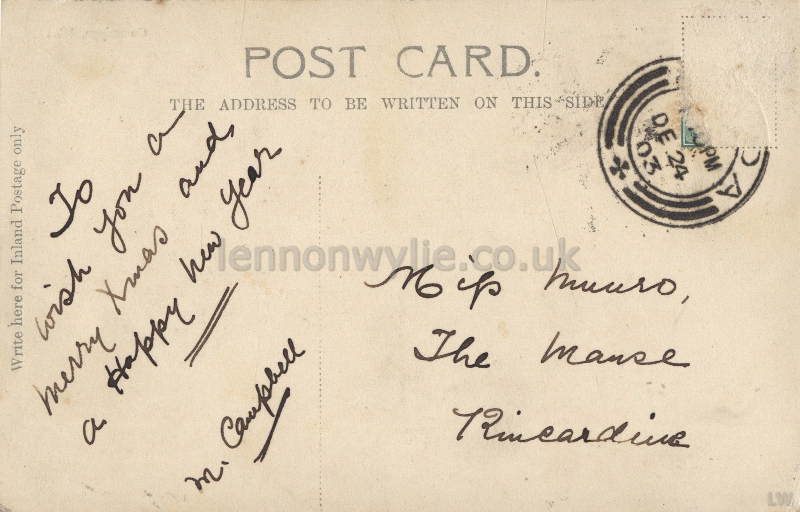 POST CARD.
THE ADDRESS TO BE WRITTEN ON THIS SIDE
Write here for Inland Postage only
To
wish you a
merry Xmas and
a Happy New Year
M. Campbell
Miss Munro,
The Manse
Kincardine
PM
DE 24
03
lennonwylie.co.uk
LW